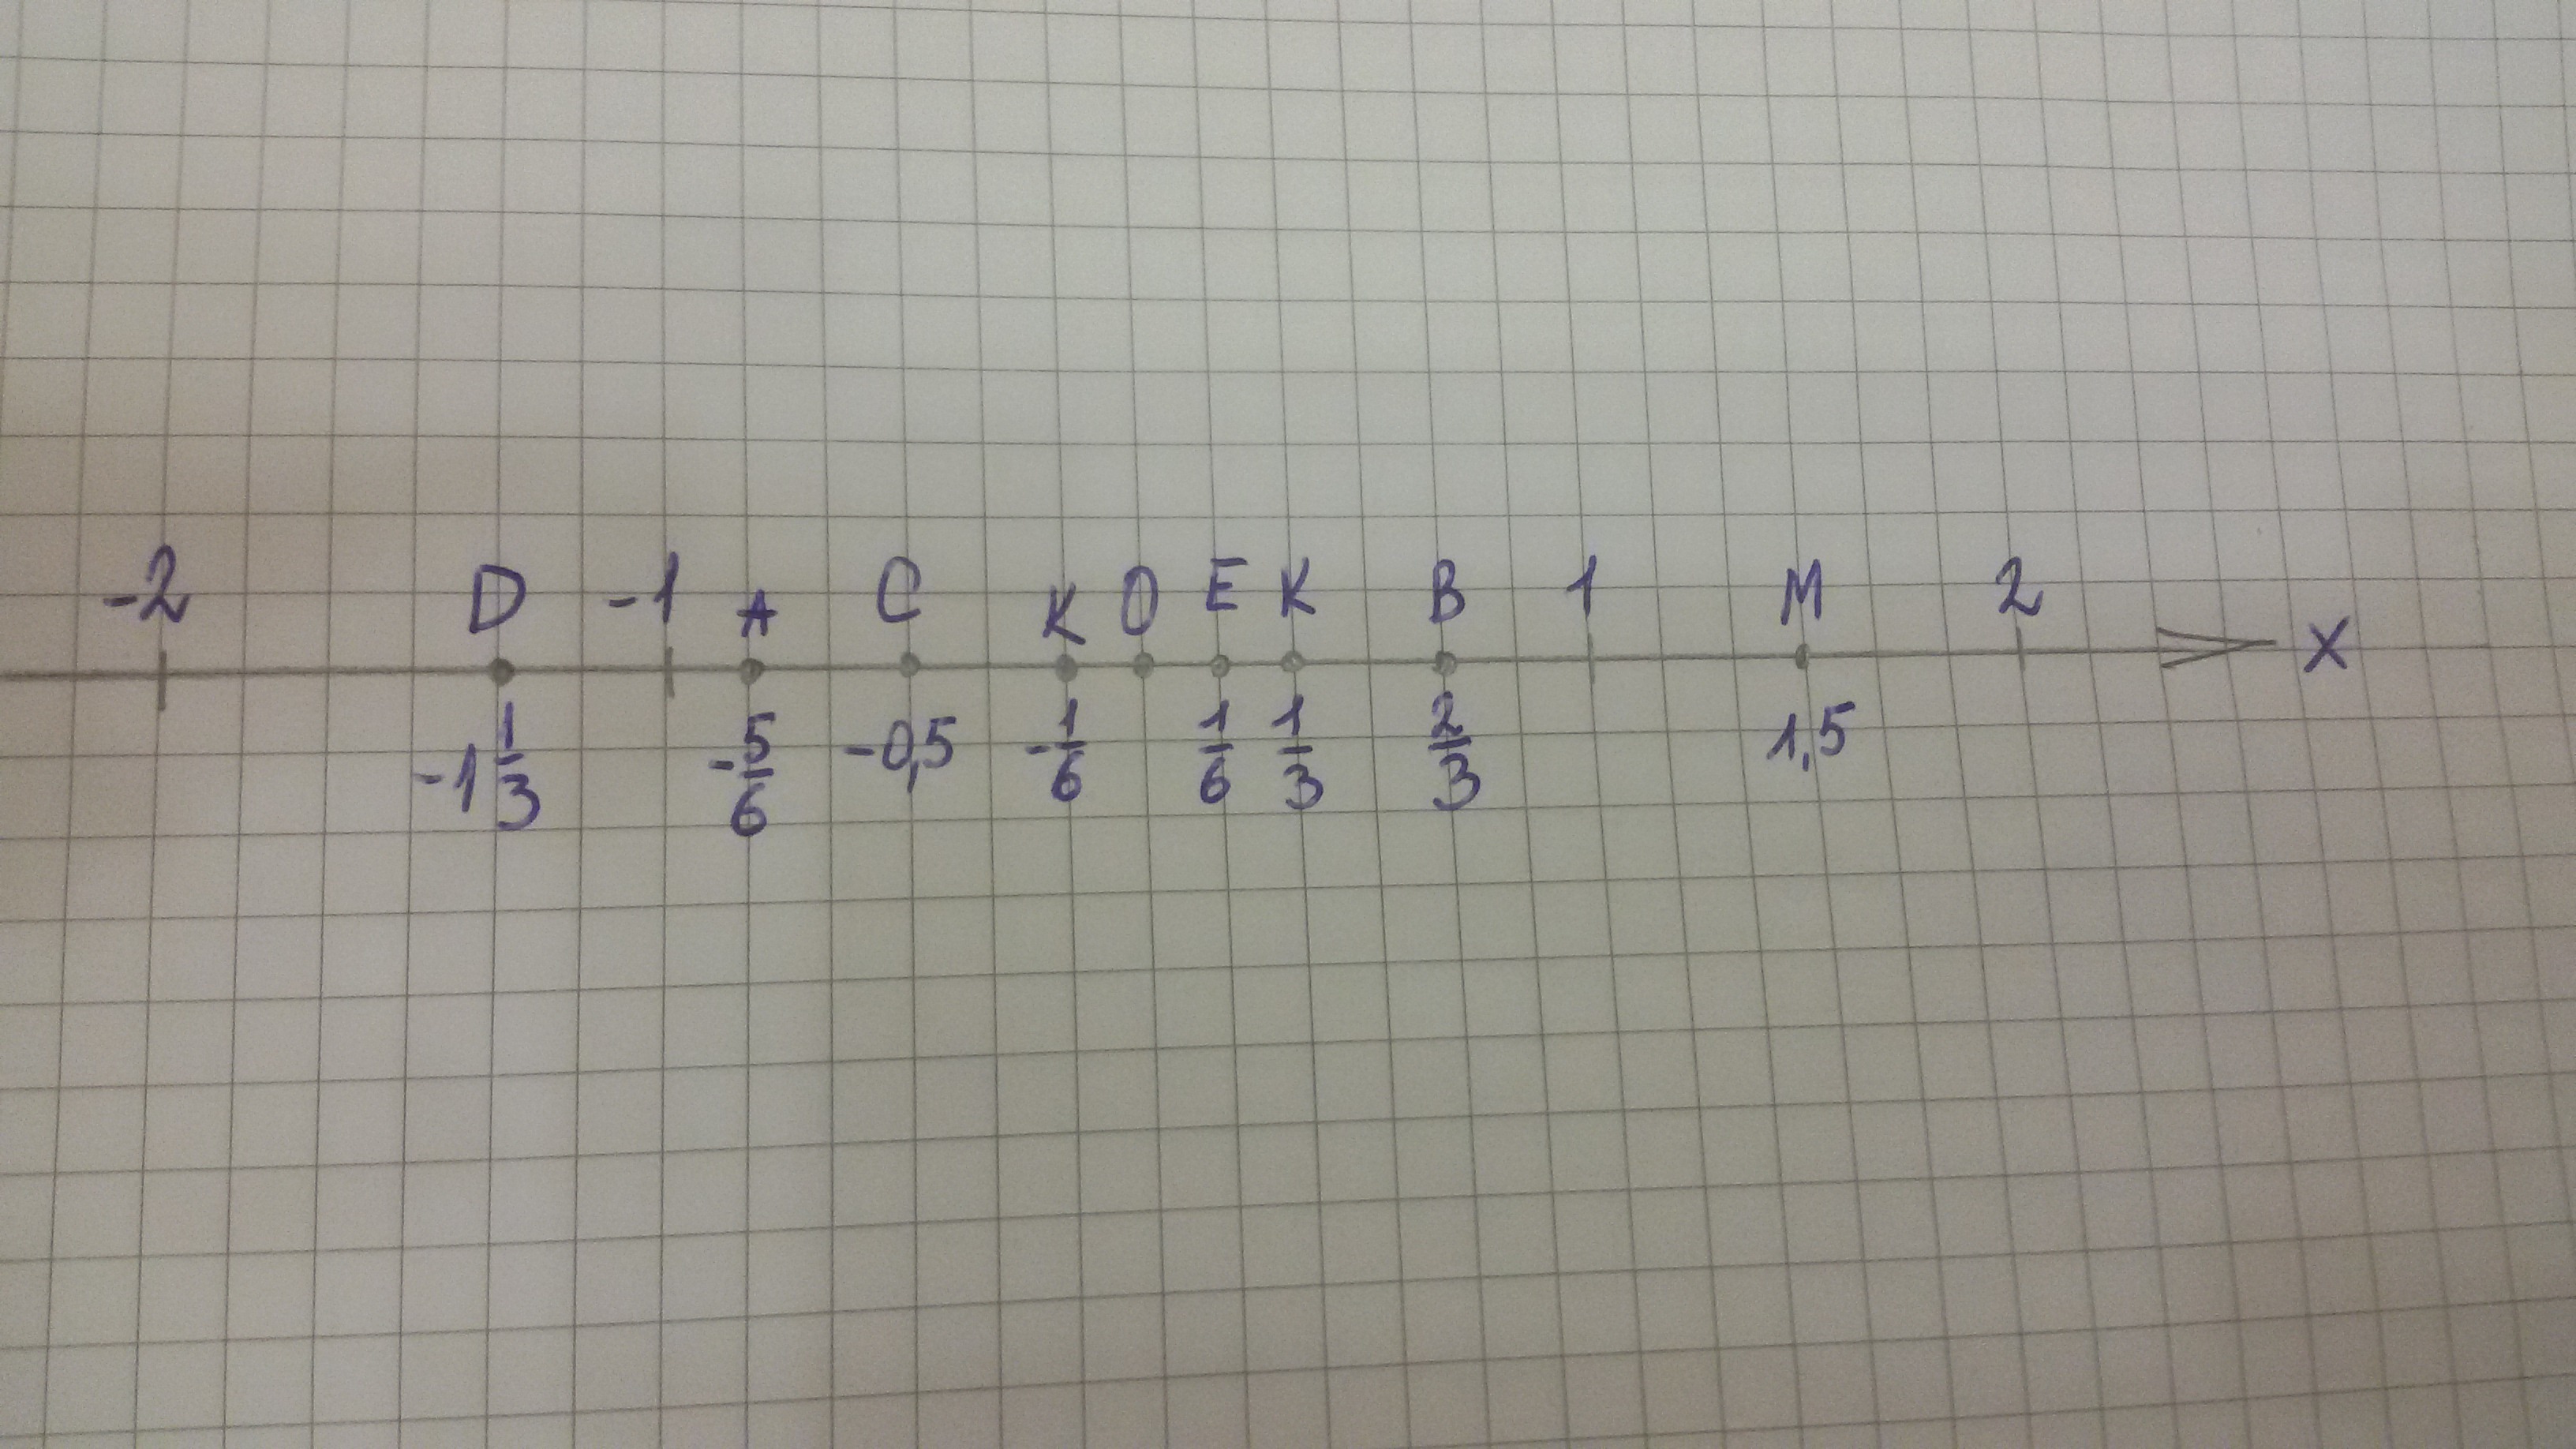 -2 D -1 A C K O E K B 1 M 2 X
-1 1/3 -5/6 -0,5 -1/6 1/6 1/3 2/3 1,5